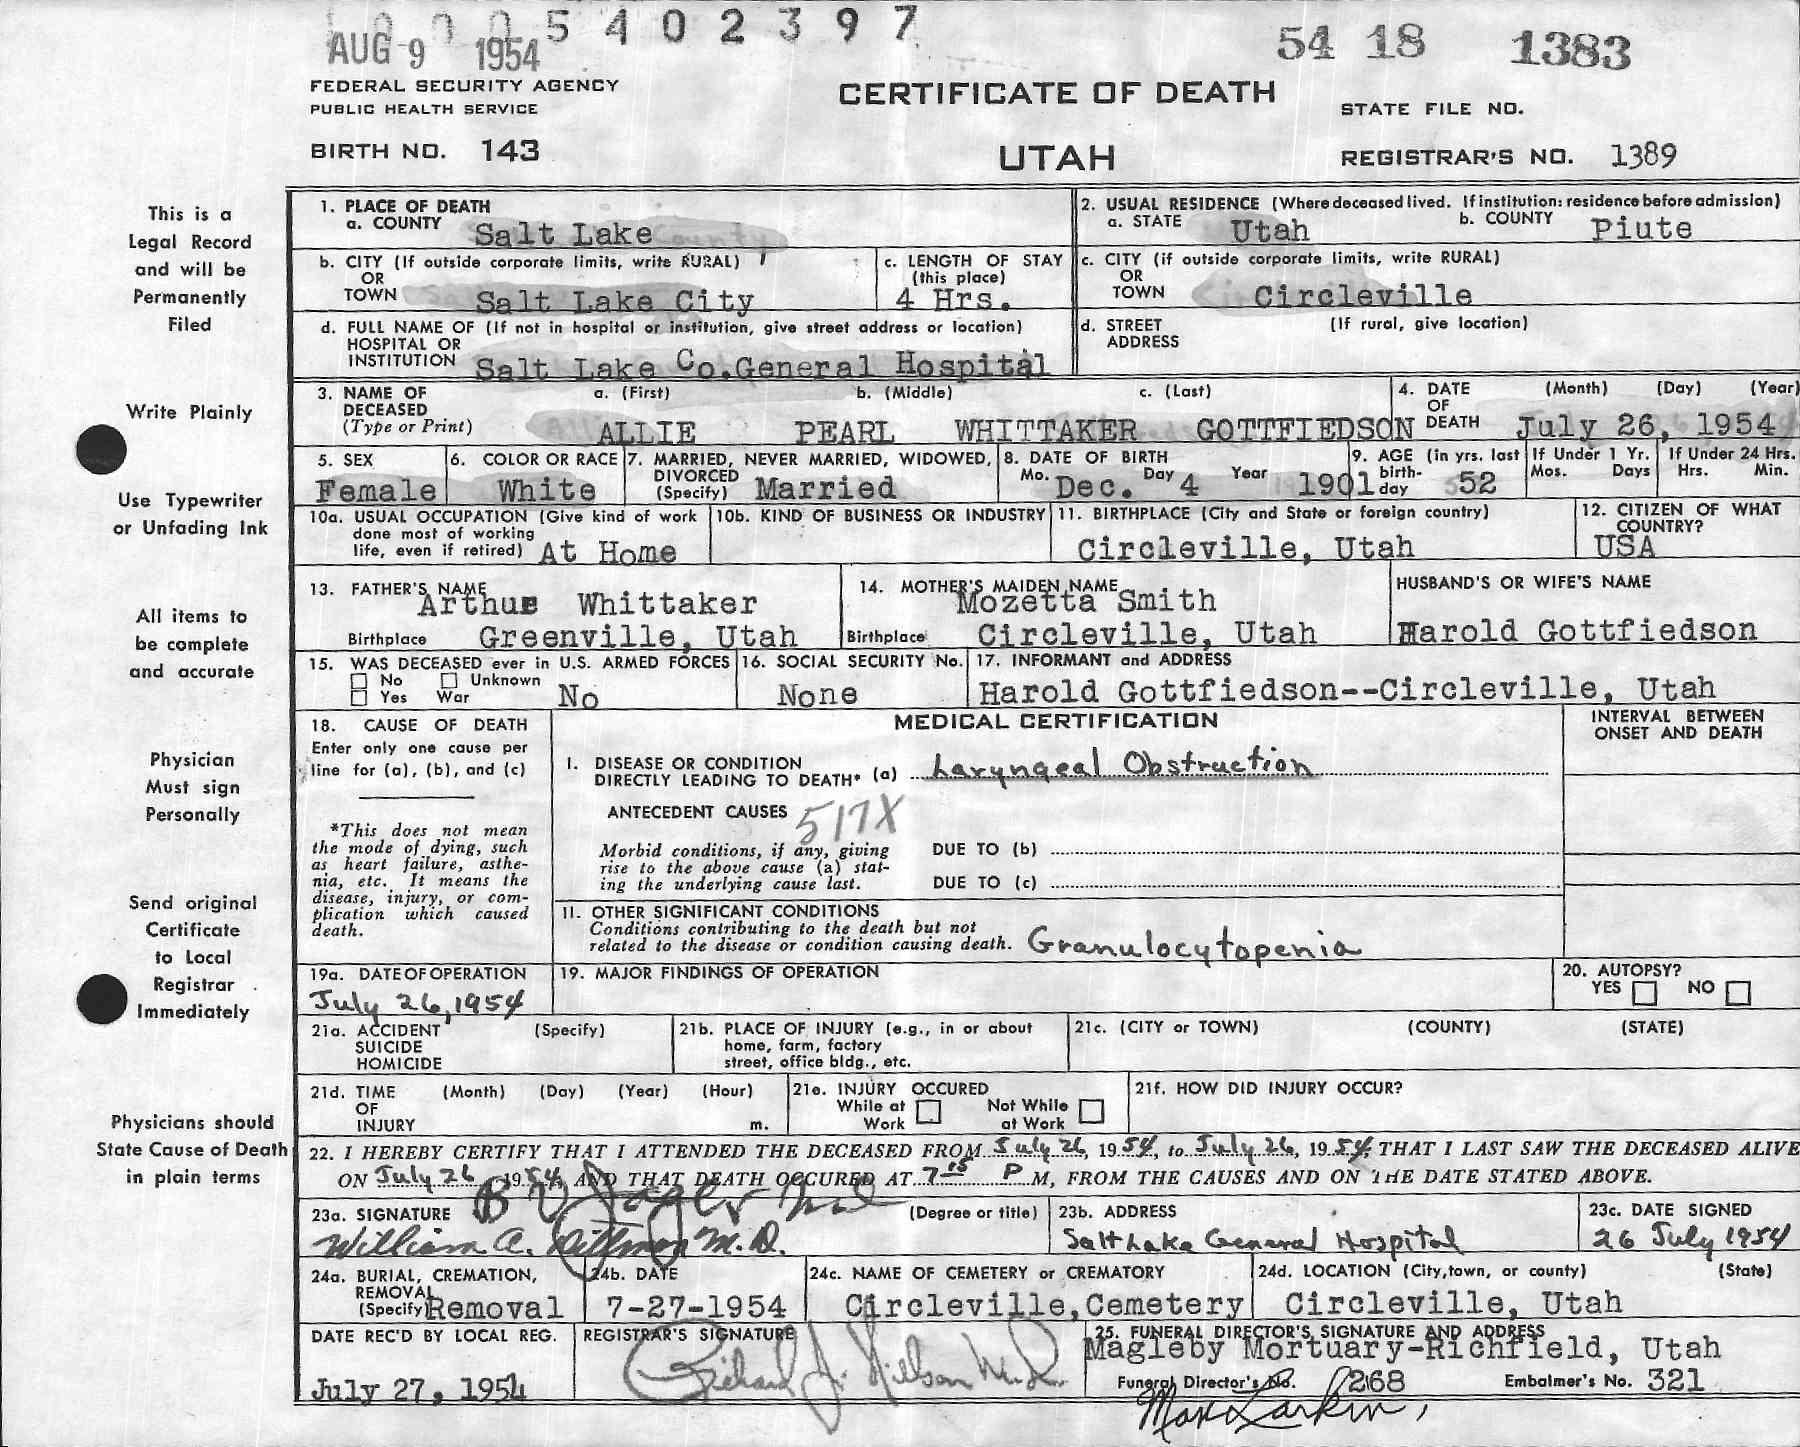 0 0 0 5 4 0 2 3 9 7
AUG 9 1954
54 18 1383
FEDERAL SECURITY AGENCY
PUBLIC HEALTH SERVICE
CERTIFICATE OF DEATH
STATE FILE NO.
BIRTH NO. 143
UTAH
REGISTRAR'S NO. 1389
This is a
Legal Record
and will be
Permanently
Filed
Write Plainly
Use Typewriter
or Unfading Ink
All items to
be complete
and accurate
Physician
Must sign
Personally
Send original
Certificate
to Local
Registrar
Immediately
Physicians should
State Cause of Death
in plain terms
1. PLACE OF DEATH
a. COUNTY Salt Lake
2. USUAL RESIDENCE (Where deceased lived. If institution: residence before admission)
a. STATE Utah b. COUNTY Piute
b. CITY (If outside corporate limits, write RURAL)
OR
TOWN Salt Lake City
c. LENGTH OF STAY
(this place)
4 Hrs.
c. CITY (if outside corporate limits, write RURAL)
OR
TOWN Circleville
d. FULL NAME OF (If not in hospital or institution, give street address or location)
HOSPITAL OR
INSTITUTION Salt Lake Co.General Hospital
d. STREET (If rural, give location)
ADDRESS
3. NAME OF a. (First) b. (Middle) c. (Last)
DECEASED
(Type or Print) ALLIE PEARL WHITTAKER GOTTFIEDSON
4. DATE (Month) (Day) (Year)
OF
DEATH July 26, 1954
5. SEX
Female
6. COLOR OR RACE
White
7. MARRIED, NEVER MARRIED, WIDOWED,
DIVORCED
(Specify) Married
8. DATE OF BIRTH
Mo. Dec. Day 4 Year 1901
9. AGE (in yrs. last
birth-
day 52
If Under 1 Yr.
Mos. Days
If Under 24 Hrs.
Hrs. Min.
10a. USUAL OCCUPATION (Give kind of work
done most of working
life, even if retired) At Home
10b. KIND OF BUSINESS OR INDUSTRY
11. BIRTHPLACE (City and State or foreign country)
Circleville, Utah
12. CITIZEN OF WHAT
COUNTRY?
USA
13. FATHER'S NAME
Arthur Whittaker
Birthplace Greenville, Utah
14. MOTHER'S MAIDEN NAME
Mozetta Smith
Birthplace Circleville, Utah
HUSBAND'S OR WIFE'S NAME
Harold Gottfiedson
15. WAS DECEASED ever in U.S. ARMED FORCES
No Unknown
Yes War No
16. SOCIAL SECURITY No.
None
17. INFORMANT and ADDRESS
Harold Gottfiedson--Circleville, Utah
18. CAUSE OF DEATH
Enter only one cause per
line for (a), (b), and (c)
*This does not mean
the mode of dying, such
as heart failure, asthe-
nia, etc. It means the
disease, injury, or com-
plication which caused
death.
MEDICAL CERTIFICATION
INTERVAL BETWEEN
ONSET AND DEATH
I. DISEASE OR CONDITION
DIRECTLY LEADING TO DEATH* (a) Laryngeal Obstruction
ANTECEDENT CAUSES 517X
Morbid conditions, if any, giving
rise to the above cause (a) stat-
ing the underlying cause last.
DUE TO (b)
DUE TO (c)
11. OTHER SIGNIFICANT CONDITIONS
Conditions contributing to the death but not
related to the disease or condition causing death. Granulocytopenia
19a. DATE OF OPERATION
July 26, 1954
19. MAJOR FINDINGS OF OPERATION
20. AUTOPSY?
YES NO
21a. ACCIDENT (Specify)
SUICIDE
HOMICIDE
21b. PLACE OF INJURY (e.g., in or about
home, farm, factory
street, office bldg., etc.
21c. (CITY or TOWN) (COUNTY) (STATE)
21d. TIME (Month) (Day) (Year) (Hour)
OF
INJURY m.
21e. INJURY OCCURED
While at Work Not While at Work
21f. HOW DID INJURY OCCUR?
22. I HEREBY CERTIFY THAT I ATTENDED THE DECEASED FROM July 26, 1954, to July 26, 1954, THAT I LAST SAW THE DECEASED ALIVE
ON July 26 1954, AND THAT DEATH OCCURED AT 7 15 P M, FROM THE CAUSES AND ON THE DATE STATED ABOVE.
23a. SIGNATURE (Degree or title)
William A. M.D.
23b. ADDRESS
Salt Lake General Hospital
23c. DATE SIGNED
26 July 1954
24a. BURIAL, CREMATION,
REMOVAL
(Specify) Removal
24b. DATE
7-27-1954
24c. NAME OF CEMETERY or CREMATORY
Circleville, Cemetery
24d. LOCATION (City, town, or county) (State)
Circleville, Utah
DATE REC'D BY LOCAL REG.
July 27, 1954
REGISTRAR'S SIGNATURE
Richard J. Nielson
25. FUNERAL DIRECTOR'S SIGNATURE AND ADDRESS
Magleby Mortuary-Richfield, Utah
Funeral Director's No. 268 Embalmer's No. 321
Max Larkin